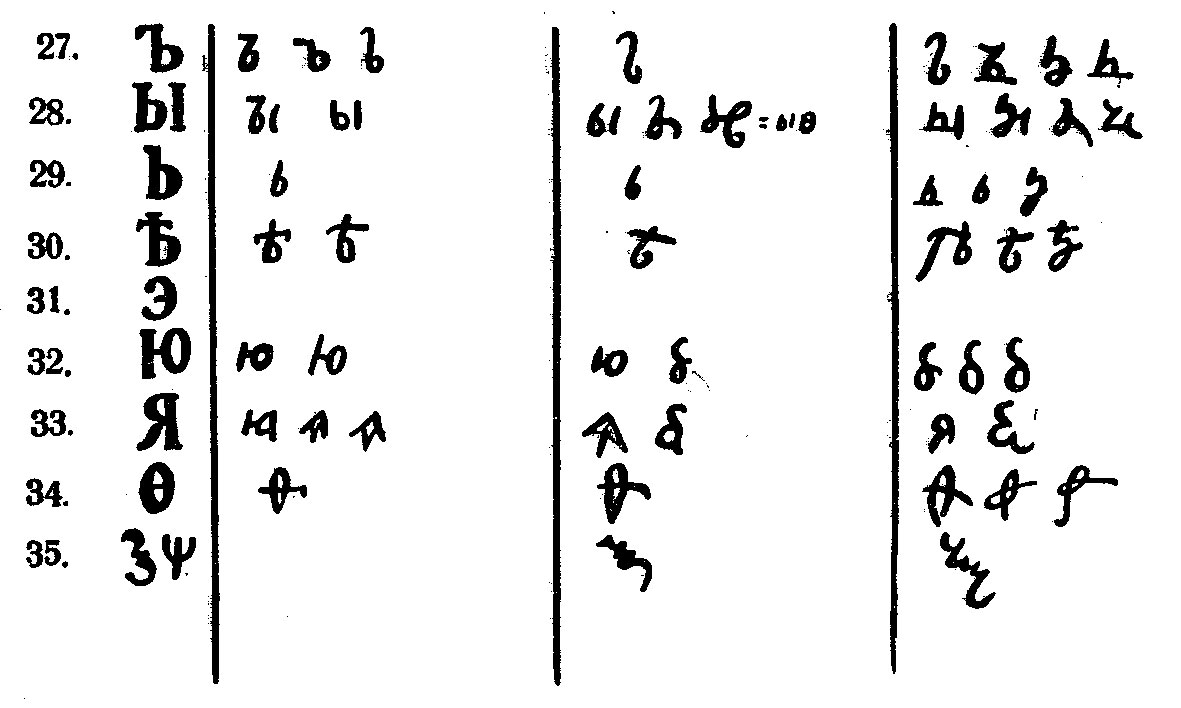 27. Ъ ъ ъ ъ ъ ъ ъ ъ ъ
28. Ы ы ы ы ы ы = ыѳ ы ы ы ы
29. Ь ь ь ь ь ь
30. Ѣ ѣ ѣ ѣ ѣ ѣ ѣ
31. Э
32. Ю ю ю ю ю ю ю ю
33. Я я ѧ ѧ ѧ я я я
34. Ѳ ѳ ѳ ѳ ѳ ѳ
35. Ѯ Ѱ ѯ ѯ